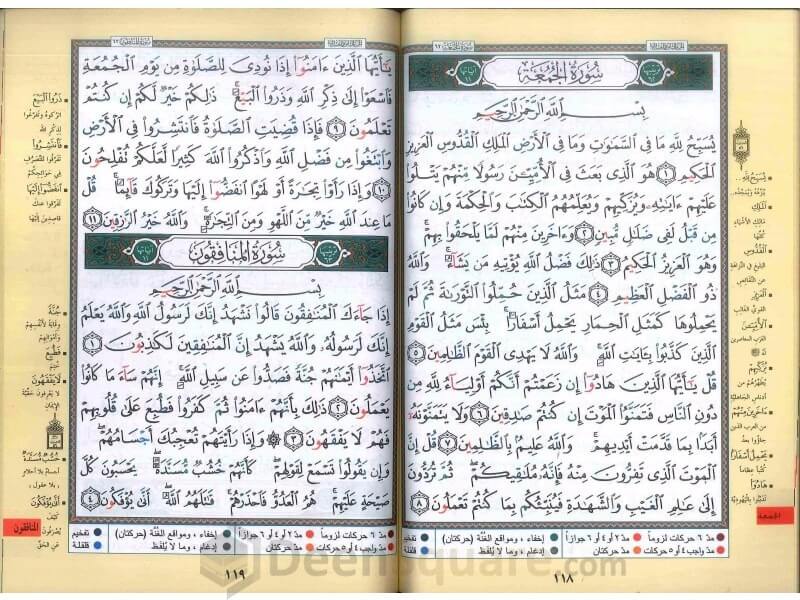 سُورَةُ الجُمُعَةِ
بِسْمِ اللَّهِ الرَّحْمَٰنِ الرَّحِيمِ
يُسَبِّحُ لِلَّهِ مَا فِي السَّمَٰوَٰتِ وَمَا فِي الْأَرْضِ الْمَلِكِ الْقُدُّوسِ الْعَزِيزِ
الْحَكِيمِ ١ هُوَ الَّذِي بَعَثَ فِي الْأُمِّيِّينَ رَسُولًا مِّنْهُمْ يَتْلُوا
عَلَيْهِمْ ءَايَٰتِهِ وَيُزَكِّيهِمْ وَيُعَلِّمُهُمُ الْكِتَٰبَ وَالْحِكْمَةَ وَإِن كَانُوا
مِن قَبْلُ لَفِي ضَلَٰلٍ مُّبِينٍ ٢ وَءَاخَرِينَ مِنْهُمْ لَمَّا يَلْحَقُوا بِهِمْ
وَهُوَ الْعَزِيزُ الْحَكِيمُ ٣ ذَٰلِكَ فَضْلُ اللَّهِ يُؤْتِيهِ مَن يَشَاءُ وَاللَّهُ
ذُو الْفَضْلِ الْعَظِيمِ ٤ مَثَلُ الَّذِينَ حُمِّلُوا التَّوْرَىٰةَ ثُمَّ لَمْ
يَحْمِلُوهَا كَمَثَلِ الْحِمَارِ يَحْمِلُ أَسْفَارًا بِئْسَ مَثَلُ الْقَوْمِ
الَّذِينَ كَذَّبُوا بِـَٔايَٰتِ اللَّهِ وَاللَّهُ لَا يَهْدِي الْقَوْمَ الظَّٰلِمِينَ ٥
قُلْ يَٰٓأَيُّهَا الَّذِينَ هَادُوا إِن زَعَمْتُمْ أَنَّكُمْ أَوْلِيَاءُ لِلَّهِ مِن
دُونِ النَّاسِ فَتَمَنَّوُا الْمَوْتَ إِن كُنتُمْ صَٰدِقِينَ ٦ وَلَا يَتَمَنَّوْنَهُ
أَبَدًا بِمَا قَدَّمَتْ أَيْدِيهِمْ وَاللَّهُ عَلِيمٌ بِالظَّٰلِمِينَ ٧ قُلْ إِنَّ
الْمَوْتَ الَّذِي تَفِرُّونَ مِنْهُ فَإِنَّهُ مُلَٰقِيكُمْ ثُمَّ تُرَدُّونَ
إِلَىٰ عَٰلِمِ الْغَيْبِ وَالشَّهَٰدَةِ فَيُنَبِّئُكُم بِمَا كُنتُمْ تَعْمَلُونَ ٨
يُسَبِّحُ لِلَّهِ
الْقُدُّوسِ
الْعَزِيزِ
الْأُمِّيِّينَ
يُزَكِّيهِمْ
هَادُوا
الجمعة
مدّ ٦ حركات لزوماً مدّ ٢ أو ٤ أو ٦ جوازاً إخفاء، ومواقع الغُنَّة (حركتان) تفخيم
مدّ واجب ٤ أو ٥ حركات مدّ حركتان إدغام، وما لا يُلفَظ قلقلة
١١٨
يَٰٓأَيُّهَا الَّذِينَ ءَامَنُوا إِذَا نُودِيَ لِلصَّلَوٰةِ مِن يَوْمِ الْجُمُعَةِ
فَاسْعَوْا إِلَىٰ ذِكْرِ اللَّهِ وَذَرُوا الْبَيْعَ ذَٰلِكُمْ خَيْرٌ لَّكُمْ إِن كُنتُمْ
تَعْلَمُونَ ٩ فَإِذَا قُضِيَتِ الصَّلَوٰةُ فَانتَشِرُوا فِي الْأَرْضِ
وَابْتَغُوا مِن فَضْلِ اللَّهِ وَاذْكُرُوا اللَّهَ كَثِيرًا لَّعَلَّكُمْ تُفْلِحُونَ
١٠ وَإِذَا رَأَوْا تِجَٰرَةً أَوْ لَهْوًا انفَضُّوا إِلَيْهَا وَتَرَكُوكَ قَائِمًا قُلْ
مَا عِندَ اللَّهِ خَيْرٌ مِّنَ اللَّهْوِ وَمِنَ التِّجَٰرَةِ وَاللَّهُ خَيْرُ الرَّٰزِقِينَ ١١
سُورَةُ المُنَافِقُونَ
بِسْمِ اللَّهِ الرَّحْمَٰنِ الرَّحِيمِ
إِذَا جَاءَكَ الْمُنَٰفِقُونَ قَالُوا نَشْهَدُ إِنَّكَ لَرَسُولُ اللَّهِ وَاللَّهُ يَعْلَمُ
إِنَّكَ لَرَسُولُهُ وَاللَّهُ يَشْهَدُ إِنَّ الْمُنَٰفِقِينَ لَكَٰذِبُونَ ١
اتَّخَذُوا أَيْمَٰنَهُمْ جُنَّةً فَصَدُّوا عَن سَبِيلِ اللَّهِ إِنَّهُمْ سَاءَ مَا كَانُوا
يَعْمَلُونَ ٢ ذَٰلِكَ بِأَنَّهُمْ ءَامَنُوا ثُمَّ كَفَرُوا فَطُبِعَ عَلَىٰ قُلُوبِهِمْ
فَهُمْ لَا يَفْقَهُونَ ٣ ۞ وَإِذَا رَأَيْتَهُمْ تُعْجِبُكَ أَجْسَامُهُمْ
وَإِن يَقُولُوا تَسْمَعْ لِقَوْلِهِمْ كَأَنَّهُمْ خُشُبٌ مُّسَنَّدَةٌ يَحْسَبُونَ كُلَّ
صَيْحَةٍ عَلَيْهِمْ هُمُ الْعَدُوُّ فَاحْذَرْهُمْ قَٰتَلَهُمُ اللَّهُ أَنَّىٰ يُؤْفَكُونَ ٤
ذَرُوا الْبَيْعَ
فَانتَشِرُوا
انفَضُّوا إِلَيْهَا
جُنَّةً
فَطُبِعَ
لَا يَفْقَهُونَ
خُشُبٌ مُّسَنَّدَةٌ
أَنَّىٰ يُؤْفَكُونَ
المنافقون
مدّ ٦ حركات لزوماً مدّ ٢ أو ٤ أو ٦ جوازاً إخفاء، ومواقع الغُنَّة (حركتان) تفخيم
مدّ واجب ٤ أو ٥ حركات مدّ حركتان إدغام، وما لا يُلفَظ قلقلة
١١٩
DeenSquare.com